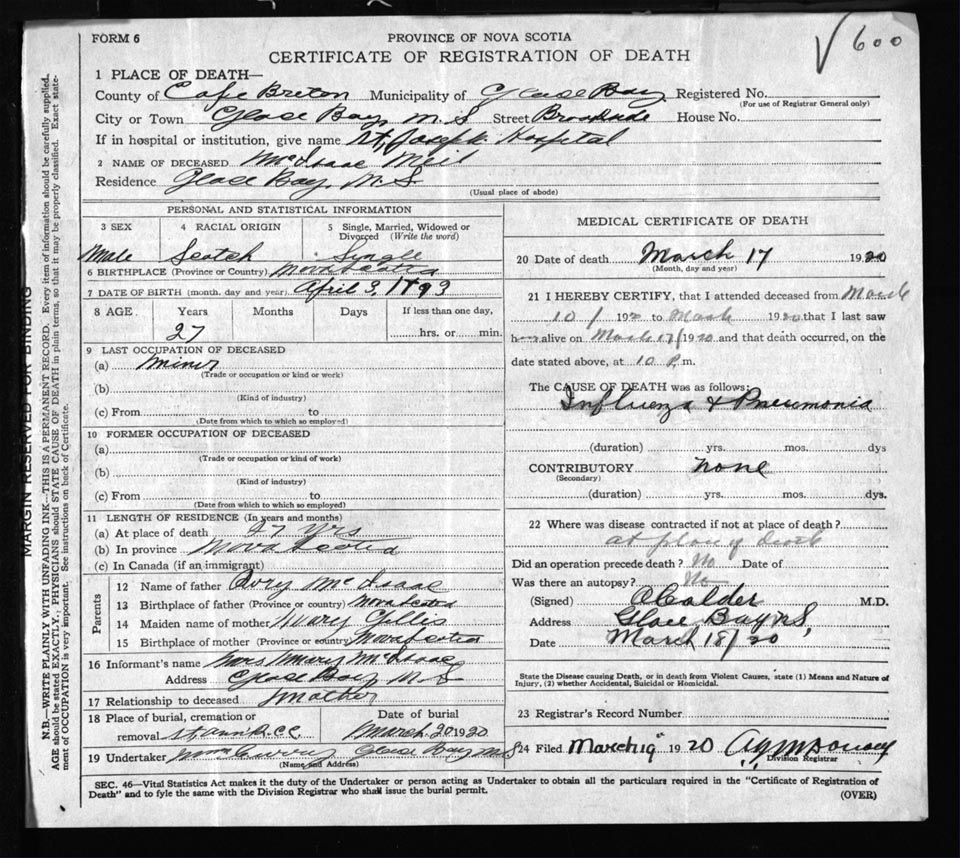 600
FORM 6
PROVINCE OF NOVA SCOTIA
CERTIFICATE OF REGISTRATION OF DEATH
1 PLACE OF DEATH—
County of Cape Breton Municipality of Glace Bay Registered No.
(For use of Registrar General only)
City or Town Glace Bay N.S Street Brookside House No.
If in hospital or institution, give name St. Joseph Hospital
2 NAME OF DECEASED McIsaac Neil
Residence Glace Bay, N.S.
(Usual place of abode)
MARGIN RESERVED FOR BINDING
N.B.—WRITE PLAINLY WITH UNFADING INK—THIS IS A PERMANENT RECORD. Every item of information should be carefully supplied.
AGE should be stated EXACTLY. PHYSICIANS should STATE CAUSE OF DEATH in plain terms, so that it may be properly classified. Exact state-
ment of OCCUPATION is very important. See instructions on back of Certificate.
PERSONAL AND STATISTICAL INFORMATION
3 SEX
4 RACIAL ORIGIN
5 Single, Married, Widowed or
Divorced (Write the word)
Male Scotch Single
6 BIRTHPLACE (Province or Country) Nova Scotia
7 DATE OF BIRTH (month, day and year) April 3, 1893
8 AGE Years Months Days If less than one day,
27 hrs. or min.
9 LAST OCCUPATION OF DECEASED
(a) Miner
(Trade or occupation or kind or work)
(b)
(Kind of industry)
(c) From to
(Date from which to which so employed)
10 FORMER OCCUPATION OF DECEASED
(a)
(Trade or occupation or kind of work)
(b)
(Kind of industry)
(c) From to
(Date from which to which so employed)
11 LENGTH OF RESIDENCE (In years and months)
(a) At place of death 27 yrs
(b) In province Nova Scotia
(c) In Canada (if an immigrant)
Parents
12 Name of father Rory McIsaac
13 Birthplace of father (Province or country) Nova Scotia
14 Maiden name of mother Mary Gillis
15 Birthplace of mother (Province or country) Nova Scotia
16 Informant's name Mrs Mary McIsaac
Address Glace Bay N S
17 Relationship to deceased Mother
18 Place of burial, cremation or Date of burial
removal St Ann R.C.C. March 20 1920
19 Undertaker Curry Glace Bay N S
(Name and Address)
MEDICAL CERTIFICATE OF DEATH
20 Date of death March 17 1920
(Month, day and year)
21 I HEREBY CERTIFY, that I attended deceased from March
10/1920 to March 1920 that I last saw
h alive on March 17/1920 and that death occurred, on the
date stated above, at 10 P.m.
The CAUSE OF DEATH was as follows:
Influenza & Pneumonia
(duration) yrs. mos. dys
CONTRIBUTORY none
(Secondary)
(duration) yrs. mos. dys.
22 Where was disease contracted if not at place of death?
at place of death
Did an operation precede death? No Date of
Was there an autopsy? No
(Signed) A Calder M.D.
Address Glace Bay N.S,
Date March 18/20
State the Disease causing Death, or in death from Violent Causes, state (1) Means and Nature of
Injury, (2) whether Accidental, Suicidal or Homicidal.
23 Registrar's Record Number
24 Filed March 19 1920
Division Registrar
SEC. 46—Vital Statistics Act makes it the duty of the Undertaker or person acting as Undertaker to obtain all the particulars required in the "Certificate of Registration of
Death" and to fyle the same with the Division Registrar who shall issue the burial permit.
(OVER)